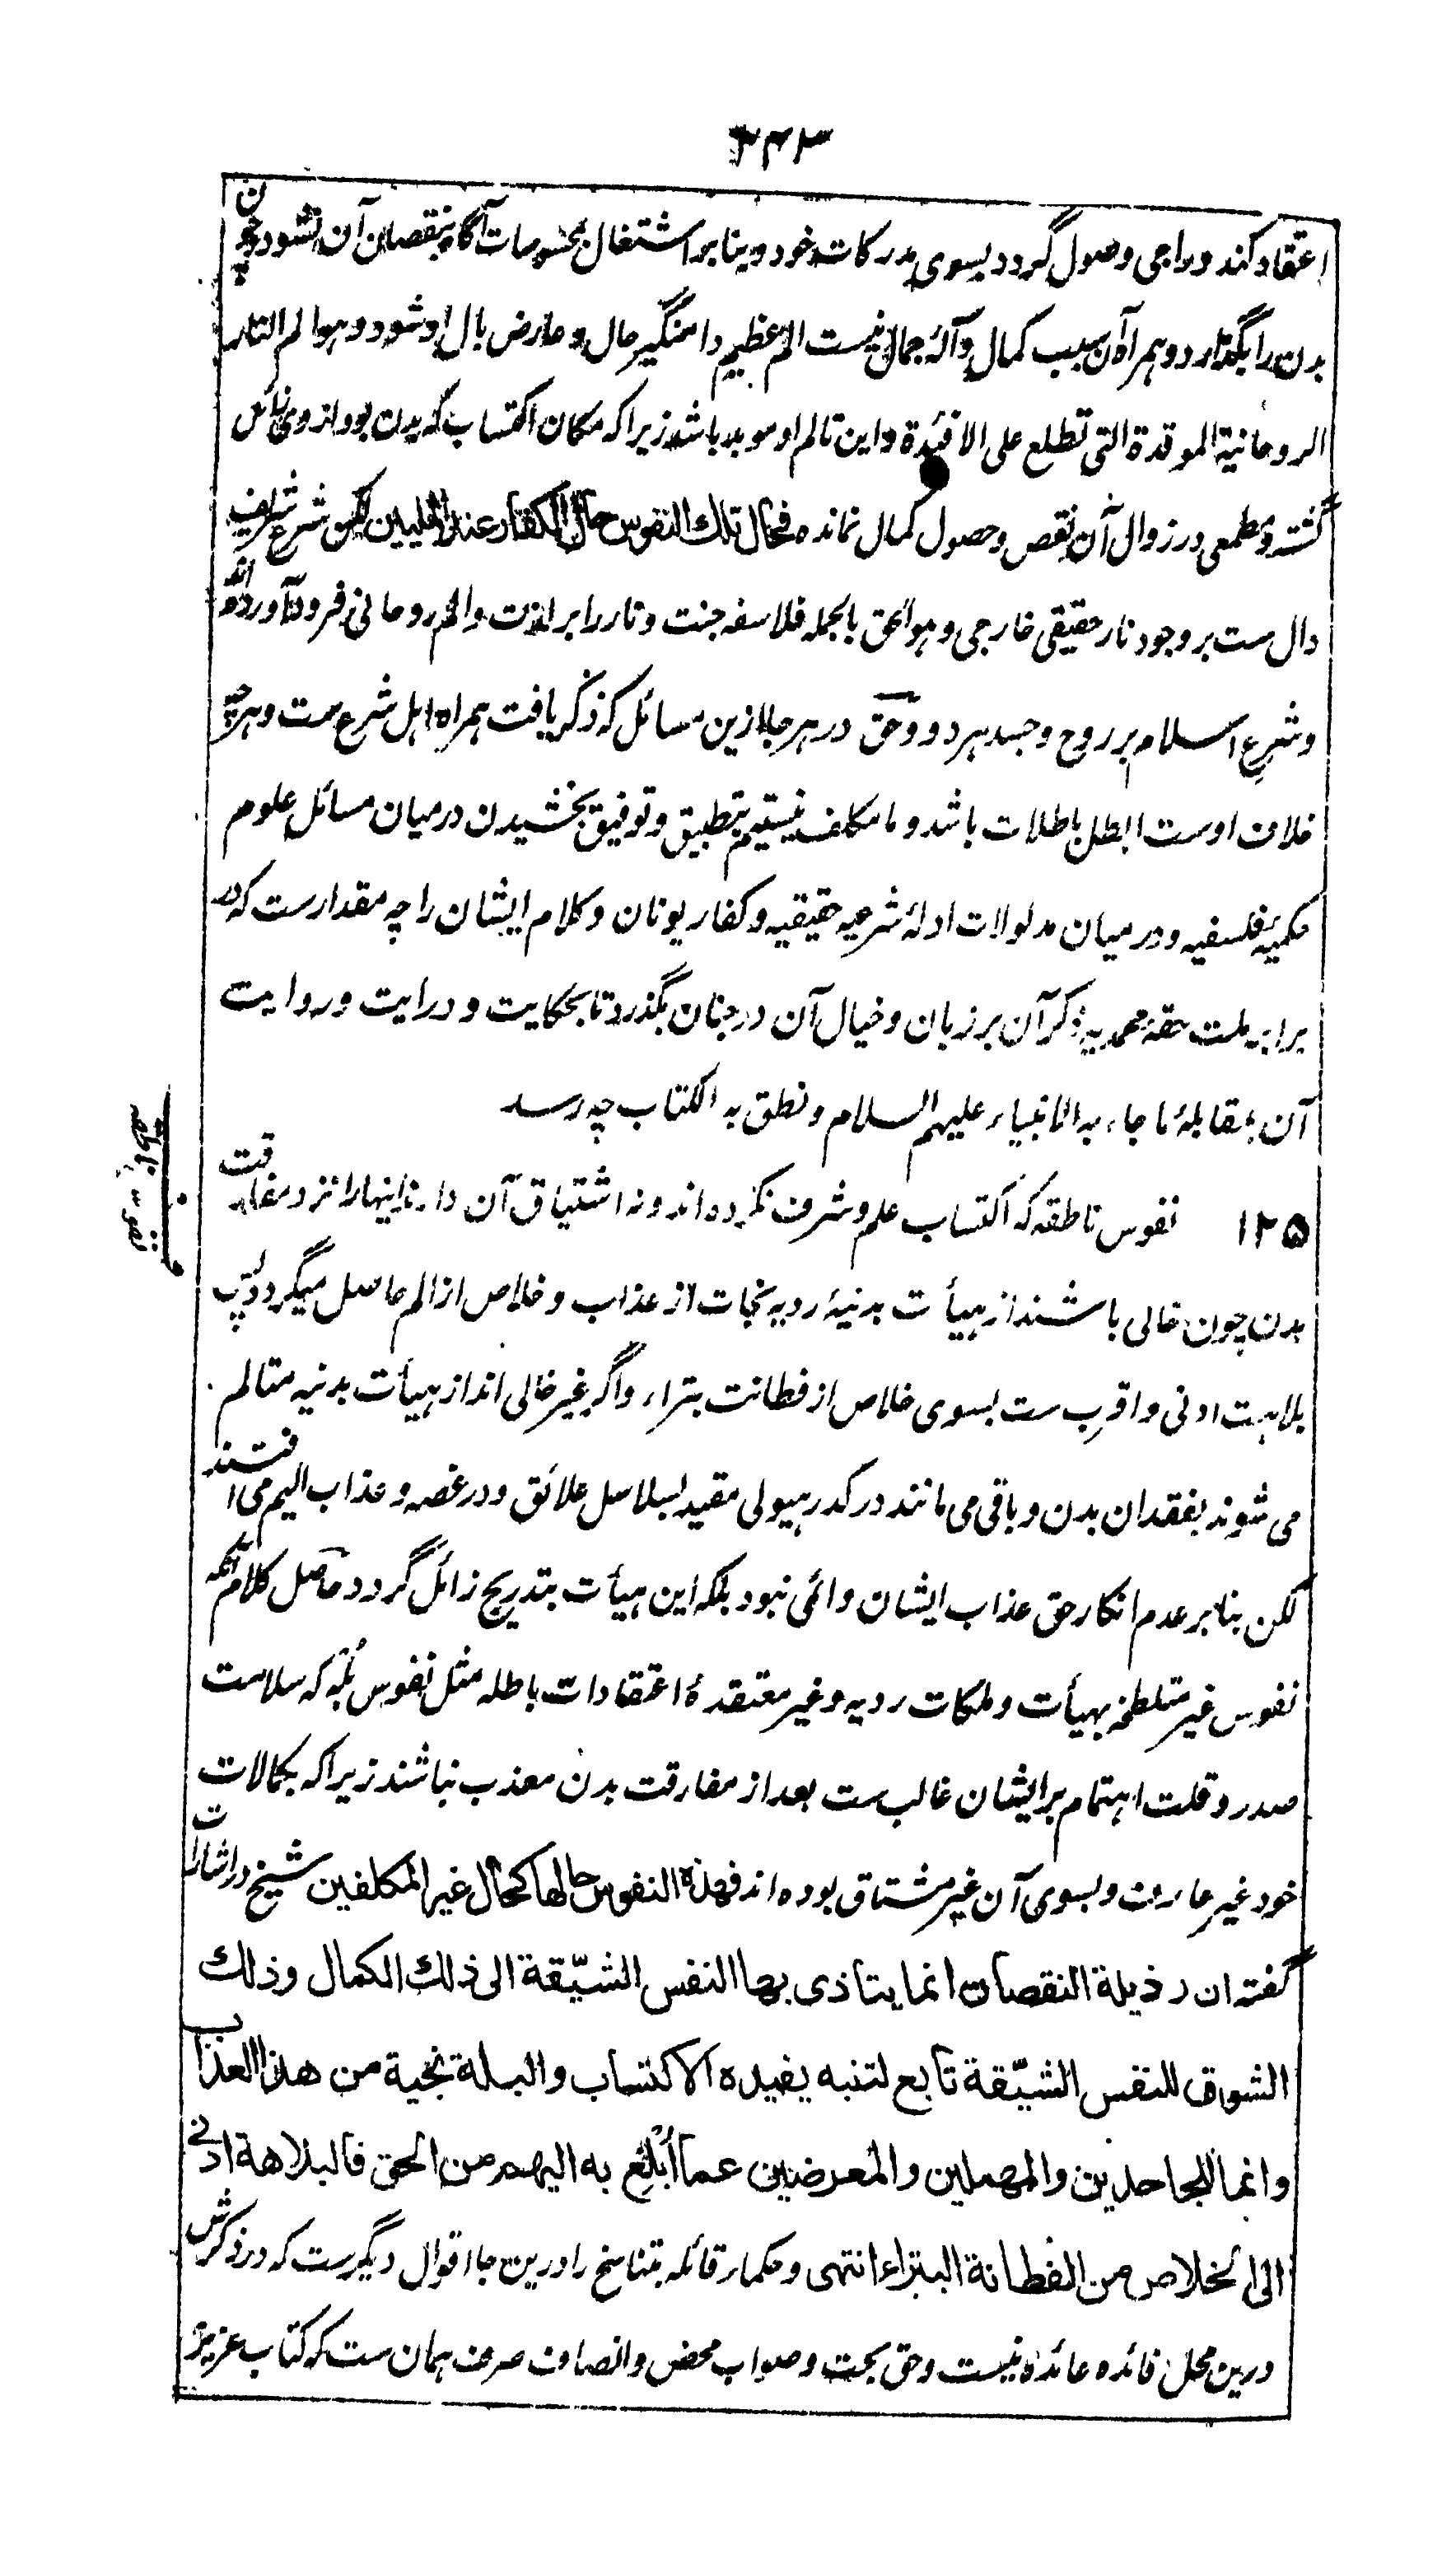 ۲۴۳
اعتقاد کند و راجی وصول گردد بسوی مدرکات خود و بنا بر اشتغال بمحسوسات آگاه بنقصان آن نشود و چون
بدن را بگذارد و همراه آن سبب کمال و آلهٔ جمال نیست الم عظیم دامنگیر حال و عارض بال او شود و هوالم النار
الروحانیة الموقدة التی تطلع علی الافئدة و این تالم او موبد باشد زیرا که مکان اکتساب که بدن بود از وی زائل
گشته و طمعی در زوال آن نقص و حصول کمال نمانده فحال تلك النفوس حال الکفار عند الملیین لکن شرع شریف
دال ست بر وجود نار حقیقی خارجی و هو الحق بالجمله فلاسفه جنت و نار را بر لذت و الم روحانی فرود آورده‌اند
و شرع اسلام بر روح و جسد هر دو و حق در هر جا ازین مسائل که ذکر یافت همراه اهل شرع ست و هر چه
خلاف اوست ابطل باطلات باشد و ما مکلف نیستیم بتطبیق و توفیق بخشیدن درمیان مسائل علوم
حکمیهٔ فلسفیه و درمیان مدلولات ادلهٔ شرعیه حقیقیه و کفار یونان و کلام ایشان را چه مقدارست که در
برابر ملت حقهٔ محمدیه ذکر آن بر زبان و خیال آن در جنان بگذرد تا بحکایت و درایت و روایت
آن بمقابلهٔ ما جاء به الانبیاء علیهم السلام و نطق به الکتاب چه رسد
نفوس ناطقه
۱۲۵ نفوس ناطقه که اکتساب علم و شرف نکرده‌اند و نه اشتیاق آن دارند اینها را نزد مفارقت
بدن چون خالی باشند از هیأت بدنیهٔ ردیه نجات از عذاب و خلاص از الم حاصل میگردد پس
بلاهت ادنی و اقرب ست بسوی خلاص از فطانت بتراء و اگر غیر خالی اند از هیأت بدنیه متالم
می شوند بفقدان بدن و باقی می مانند در کدر هیولی مقید بسلاسل علائق و در غصه و عذاب الیم می افتند
لکن بنا بر عدم انکار حق عذاب ایشان دائمی نبود بلکه این هیأت بتدریج زائل گردد حاصل کلام آنکه
نفوس غیر متلطخه بهیأت و ملکات ردیه و غیر معتقدهٔ اعتقادات باطله مثل نفوس بُلْه که سلامت
صدر و قلت اهتمام بر ایشان غالب ست بعد از مفارقت بدن معذب نباشند زیرا که بکمالات
خود غیر عارف و بسوی آن غیر مشتاق بوده اند فهذه النفوس حالها کحال غیر المکلفین شیخ در اشارات
گفته ان رذیلة النقصان انما یتاذی بها النفس الشیّقة الی ذلك الکمال وذلك
الشوق للنفس الشیّقة تابع لتنبه یفیده الاکتساب والبله نجیة من هذا العذاب
وانما للجاحدین والمهملین والمعرضین عما اُبْلِغ به الیهم من الحق فالبلاهة ادنی
الی الخلاص من الفطانة البتراء انتهی و حکمار قائله بتناسخ را درین جا اقوال دیگرست که در ذکرش
درین محل فائده عائده نیست و حق بحت و صواب محض و انصاف صرف همان ست که کتاب عزیز